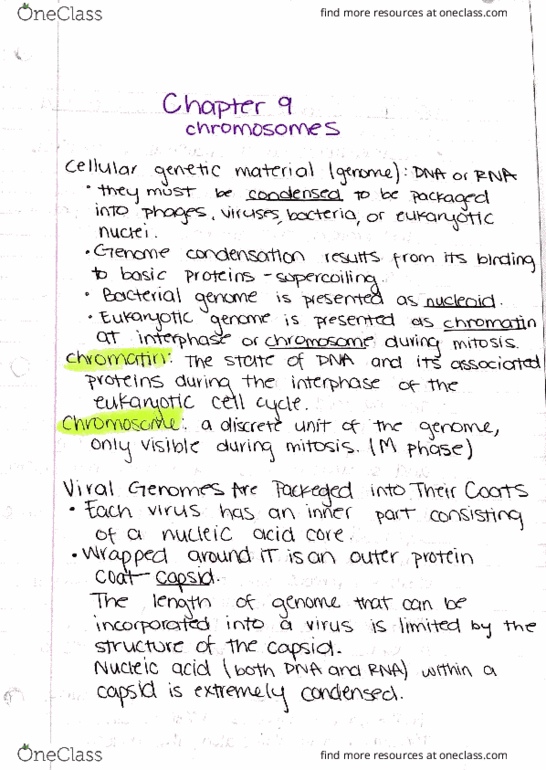 OneClass
find more resources at oneclass.com
Chapter 9
chromosomes
Cellular genetic material (genome): DNA or RNA
• they must be condensed to be packaged
into phages, viruses, bacteria, or eukaryotic
nuclei.
• Genome condensation results from its binding
to basic proteins - supercoiling
• Bacterial genome is presented as nucleoid.
• Eukaryotic genome is presented as chromatin
at interphase or chromosome during mitosis.
chromatin: The state of DNA and its associated
proteins during the interphase of the
eukaryotic cell cycle.
chromosome: a discrete unit of the genome,
only visible during mitosis. (M phase)
Viral Genomes Are Packeged into Their Coats
• Each virus has an inner part consisting
of a nucleic acid core.
• Wrapped around iT is an outer protein
coat - capsid.
The length of genome that can be
incorporated into a virus is limited by the
structure of the capsid.
Nucleic acid (both DNA and RNA) within a
capsid is extremely condensed.
OneClass
find more resources at oneclass.com